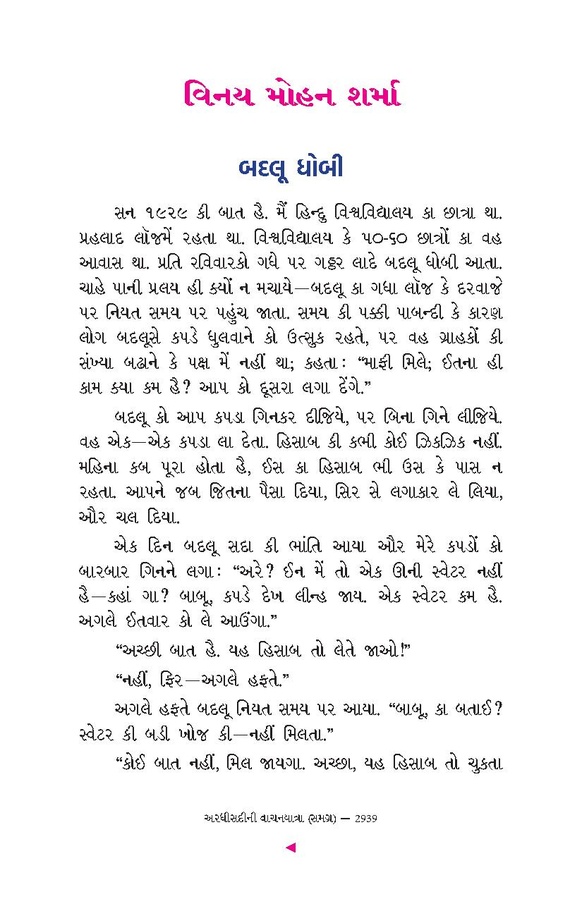 વિનય મોહન શર્મા
બદલૂ ધોબી
સન ૧૯૨૯ કી બાત હૈ. મૈં હિન્દુ વિશ્વવિદ્યાલય કા છાત્રા થા.
પ્રહલાદ લૉજમેં રહતા થા. વિશ્વવિદ્યાલય કે ૫૦-૬૦ છાત્રોં કા વહ
આવાસ થા. પ્રતિ રવિવારકો ગધે પર ગટ્ઠર લાદે બદલૂ ધોબી આતા.
ચાહે પાની પ્રલય હી ક્યોં ન મચાયે—બદલૂ કા ગધા લૉજ કે દરવાજે
પર નિયત સમય પર પહુંચ જાતા. સમય કી પક્કી પાબન્દી કે કારણ
લોગ બદલૂસે કપડે ધુલવાને કો ઉત્સુક રહતે, પર વહ ગ્રાહકોં કી
સંખ્યા બઢાને કે પક્ષ મેં નહીં થા; કહતા : “માફી મિલે; ઈતના હી
કામ ક્યા કમ હૈ? આપ કો દૂસરા લગા દેંગે.”
બદલૂ કો આપ કપડા ગિનકર દીજિયે, પર બિના ગિને લીજિયે.
વહ એક—એક કપડા લા દેતા. હિસાબ કી કભી કોઈ ઝિકઝિક નહીં.
મહિના કબ પૂરા હોતા હૈ, ઈસ કા હિસાબ ભી ઉસ કે પાસ ન
રહતા. આપને જબ જિતના પૈસા દિયા, સિર સે લગાકાર લે લિયા,
ઔર ચલ દિયા.
એક દિન બદલૂ સદા કી ભાંતિ આયા ઔર મેરે કપડોં કો
બારબાર ગિનને લગા : “અરે? ઈન મેં તો એક ઊની સ્વેટર નહીં
હૈ—કહાં ગા? બાબૂ, કપડે દેખ લીન્હ જાય. એક સ્વેટર કમ હૈ.
અગલે ઈતવાર કો લે આઉંગા.”
“અચ્છી બાત હૈ. યહ હિસાબ તો લેતે જાઓ!”
“નહીં, ફિર—અગલે હફતે.”
અગલે હફતે બદલૂ નિયત સમય પર આયા. “બાબૂ, કા બતાઈ?
સ્વેટર કી બડી ખોજ કી—નહીં મિલતા.”
“કોઈ બાત નહીં, મિલ જાયગા. અચ્છા, યહ હિસાબ તો ચુકતા
અરધીસદીની વાચનયાત્રા (સમગ્ર) — 2939